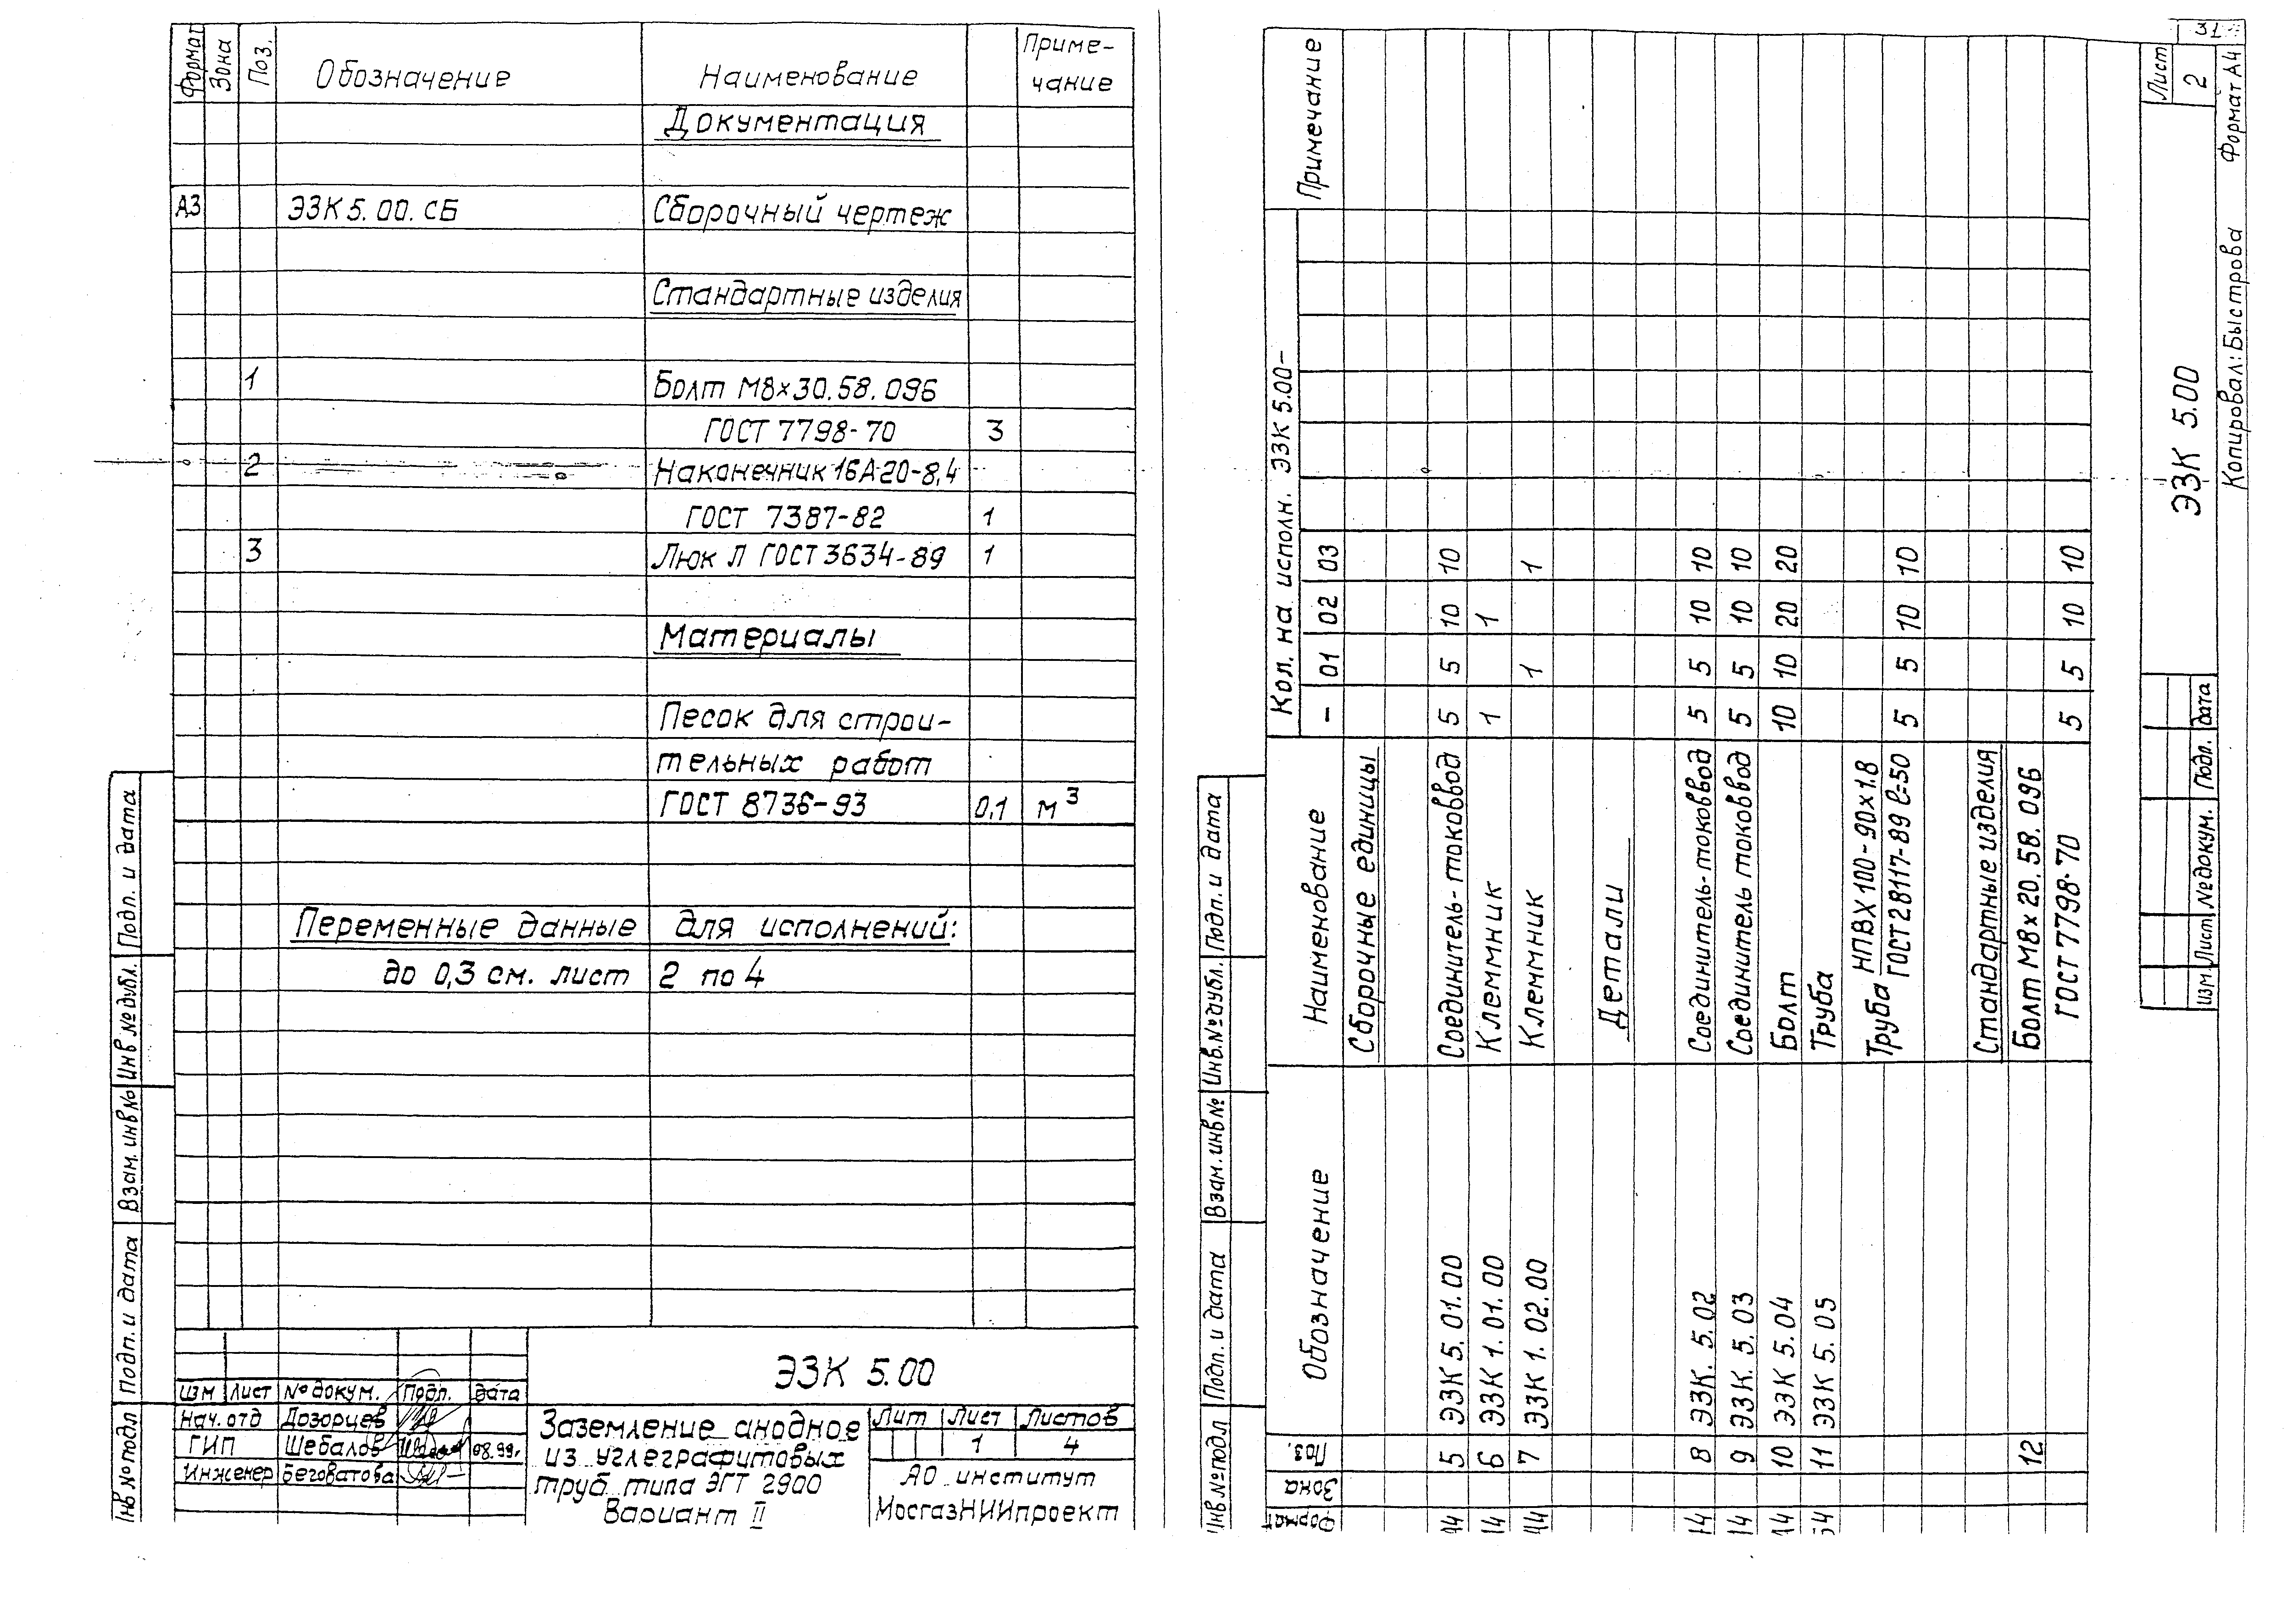 Формат Зона Поз. Обозначение Наименование Приме-
чание
Документация
А3 ЭЗК 5.00.СБ Сборочный чертеж
Стандартные изделия
1 Болт М8×30.58.096
ГОСТ 7798-70 3
2 Наконечник 16А20-8,4
ГОСТ 7387-82 1
3 Люк Л ГОСТ 3634-89 1
Материалы
Песок для строи-
тельных работ
ГОСТ 8736-93 0,1 м³
Переменные данные для исполнений:
до 0,3 см. лист 2 по 4
Инв № подл Подп. и дата Взам. инв № Инв № дубл. Подп. и дата
ЭЗК 5.00
изм Лист № докум. Подп. дата
Нач. отд Дозорцев
ГИП Шебалов 08.99г.
Инженер Беговатова
Заземление анодное
из углеграфитовых
труб типа ЭГТ 2900
Вариант II
Лит Лист Листов
1 4
АО институт
МосгазНИИпроект
Формат Зона Поз. Обозначение Наименование Кол. на исполн. ЭЗК 5.00- Примечание
- 01 02 03
Сборочные единицы
А4 5 ЭЗК 5.01.00 Соединитель-токоввод 5 5 10 10
А4 6 ЭЗК 1.01.00 Клеммник 1 1
А4 7 ЭЗК 1.02.00 Клеммник 1 1
Детали
А4 8 ЭЗК. 5.02 Соединитель-токоввод 5 5 10 10
А4 9 ЭЗК. 5.03 Соединитель токоввод 5 5 10 10
А4 10 ЭЗК 5.04 Болт 10 10 20 20
Б4 11 ЭЗК 5.05 Труба
Труба НПВХ 100-90×1.8
ГОСТ 28117-89 ℓ=50 5 5 10 10
Стандартные изделия
12 Болт М8×20.58.096
ГОСТ 7798-70 5 5 10 10
Инв № подл Подп. и дата Взам. инв № Инв. № дубл. Подп. и дата
изм. Лист № докум. Подп. дата
ЭЗК 5.00
Лист
2
Копировал: Быстрова Формат А4
31